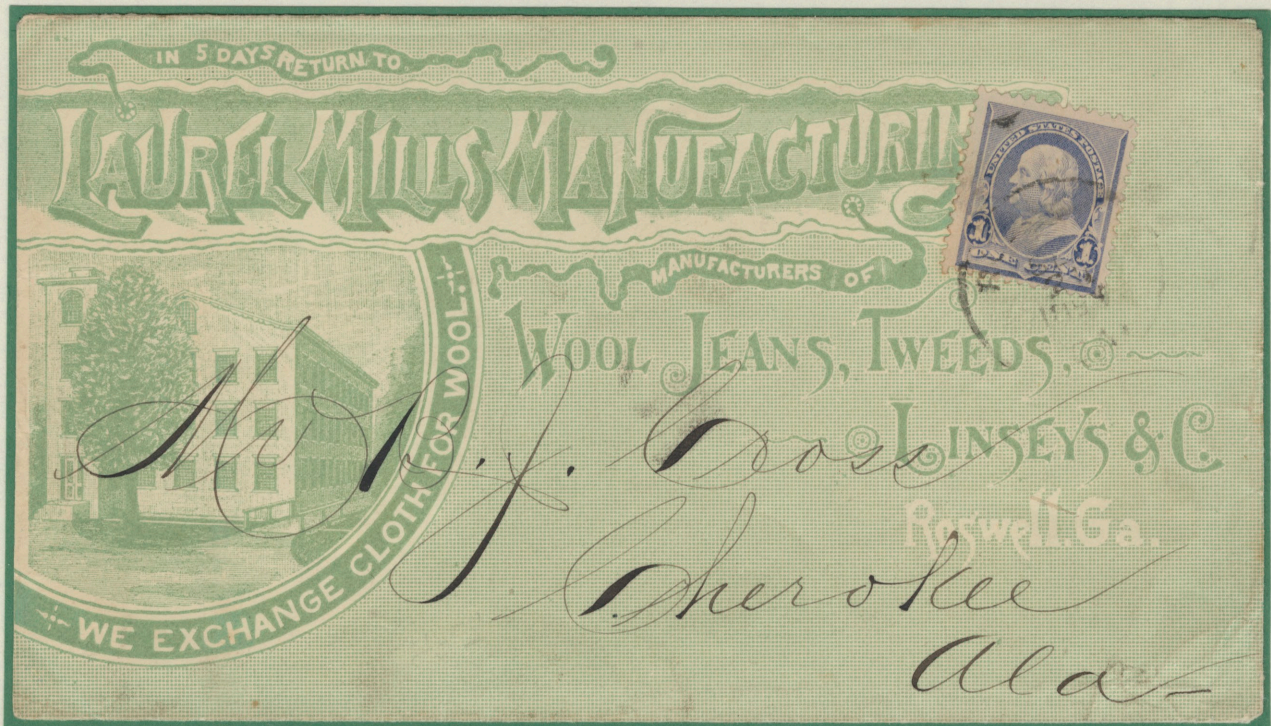 IN 5 DAYS RETURN TO
LAUREL MILLS MANUFACTURIN
MANUFACTURERS OF
WOOL JEANS, TWEEDS,
LINSEYS & C.
Roswell. Ga.
WE EXCHANGE CLOTH FOR WOOL
UNITED STATES POSTAGE
1 1
ONE CENT
Mr J. Cross
Cherokee
Ala